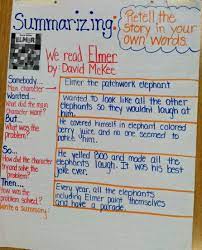 Summarizing:
Retell the
story in your
own words.
ELMER
We read Elmer
by David McKee
Somebody...
Main character
Elmer the patchwork elephant
Wanted...
What did the main
character want?
Wanted to look like all the other
elephants so they wouldn't laugh at
him.
But...
What was the
problem?
He covered himself in elephant colored
berry juice and no one seemed to
notice him.
So...
How did the character
try and solve the
problem?
He yelled BOO and made all the
elephants laugh. It was his best
joke ever.
Then...
How was the
problem solved?
Every year, all the elephants
including Elmer paint themselves
and have a parade.
Write a summary!